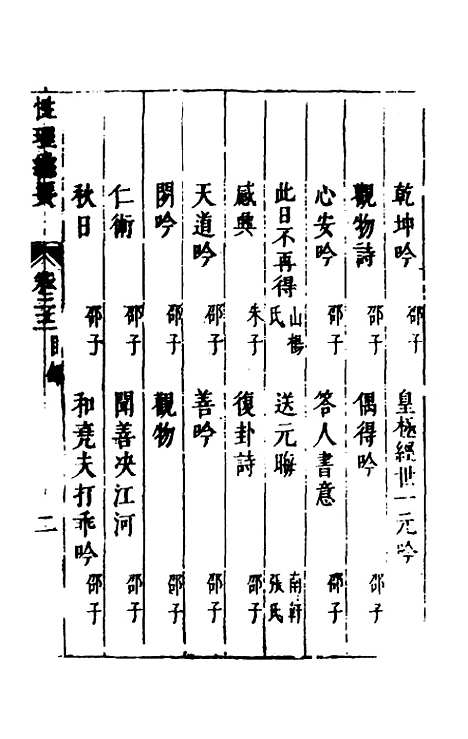 乾坤吟 邵子 皇極經世一元吟
觀物詩 邵子 偶得吟 邵子
心安吟 邵子 答人書意 邵子
此日不再得 山楊氏 送元聨 南軒張氏
感興 朱子 復卦詩 邵子
天道吟 邵子 善吟 邵子
閒吟 邵子 觀物 邵子
仁術 邵子 聞善决江河 邵子
秋日 邵子 和堯夫打乖吟 邵子
性理 卷三 目 二